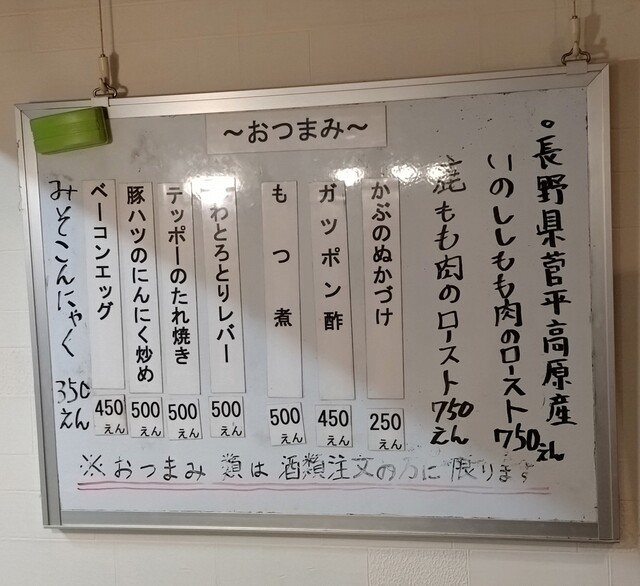 ～おつまみ～
。長野県菅平高原産
いのししもも肉のロースト 750えん
鹿もも肉のロースト 750えん
かぶのぬかづけ 250えん
ガツポン酢 450えん
もつ煮 500えん
わとろとりレバー 500えん
テッポーのたれ焼き 500えん
豚ハツのにんにく炒め 500えん
ベーコンエッグ 450えん
みそこんにゃく 350えん
※おつまみ類は酒類注文の方に限ります